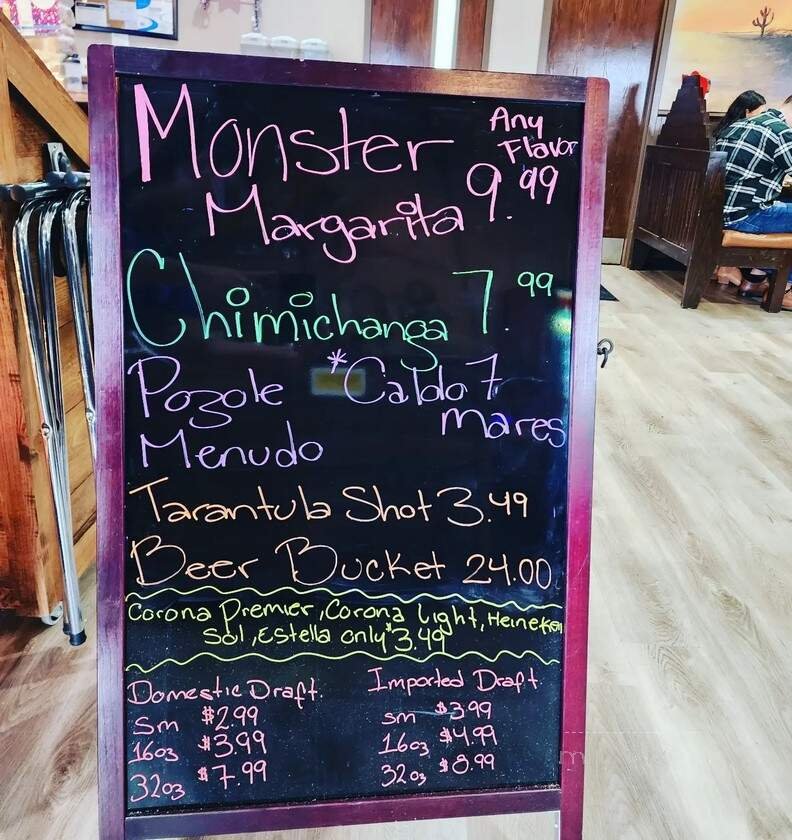 Monster
Any
Flavor
Margarita 9.99
Chimichanga 7.99
Pozole *Caldo 7
mares
Menudo
Tarantula Shot 3.49
Beer Bucket 24.00
Corona Premier, Corona Light, Heineken
Sol, Estella only $3.49
Domestic Draft.
Imported Draft.
sm $2.99
sm $3.99
16oz $3.99
16oz $4.99
32oz $7.99
32oz $8.99